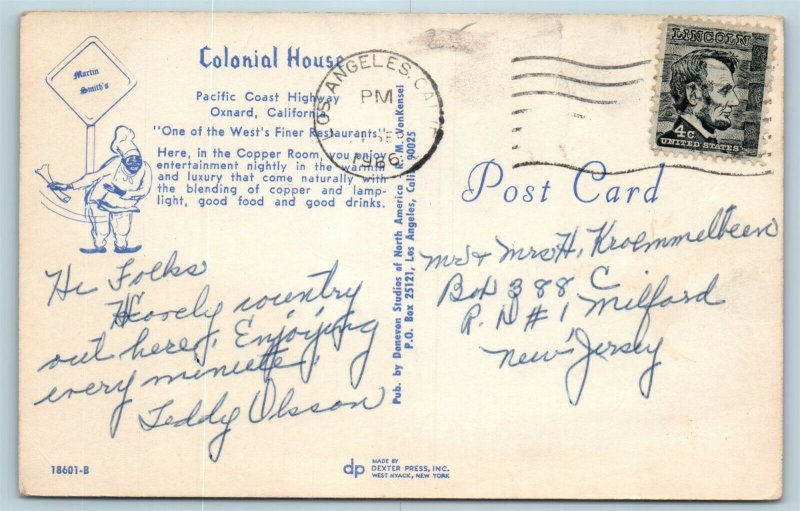 Martin
Smith's
Colonial House
Pacific Coast Highway
Oxnard, California
"One of the West's Finer Restaurants"
Here, in the Copper Room, you enjoy
entertainment nightly in the warmth
and luxury that come naturally with
the blending of copper and lamp-
light, good food and good drinks.
Hi Folks
Lovely country
out here, Enjoying
every minute,
Teddy Olsson
18601-B
Pub. by Donevon Studios of North America R. M. VonKensel
P.O. Box 25121, Los Angeles, Calif. 90025
LOS ANGELES, CALIF
PM
1966
LINCOLN
4c
UNITED STATES
Post Card
Mr & Mrs H. Kroemmelbeen
Box 388 C
R. D # 1 Milford
New Jersey
dp
MADE BY
DEXTER PRESS, INC.
WEST NYACK, NEW YORK